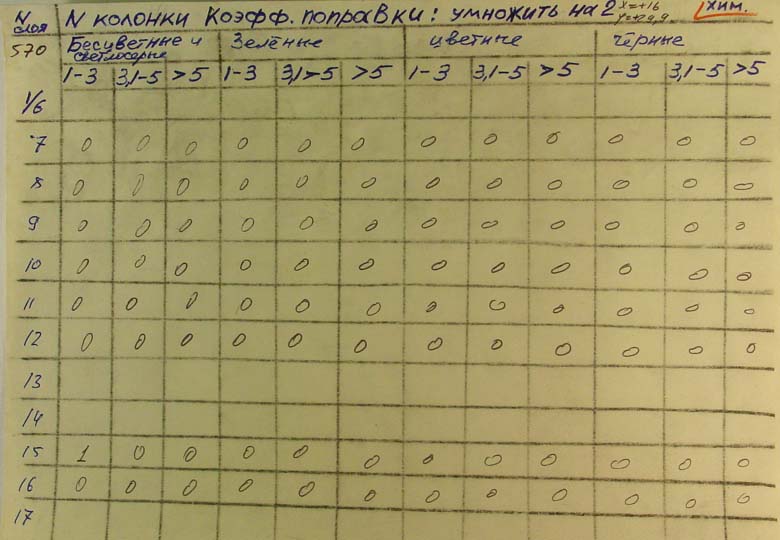 N слоя N колонки Коэфф. поправки: умножить на 2 x=+16 y=+29,9 хим.
570 Бесцветные и светлосерые Зелёные цветные чёрные
1-3 3,1-5 >5 1-3 3,1>5 >5 1-3 3,1-5 >5 1-3 3,1-5 >5
1/6
7 0 0 0 0 0 0 0 0 0 0 0 0
8 0 0 0 0 0 0 0 0 0 0 0 0
9 0 0 0 0 0 0 0 0 0 0 0 0
10 0 0 0 0 0 0 0 0 0 0 0 0
11 0 0 0 0 0 0 0 0 0 0 0 0
12 0 0 0 0 0 0 0 0 0 0 0 0
13
14
15 1 0 0 0 0 0 0 0 0 0 0 0
16 0 0 0 0 0 0 0 0 0 0 0 0
17